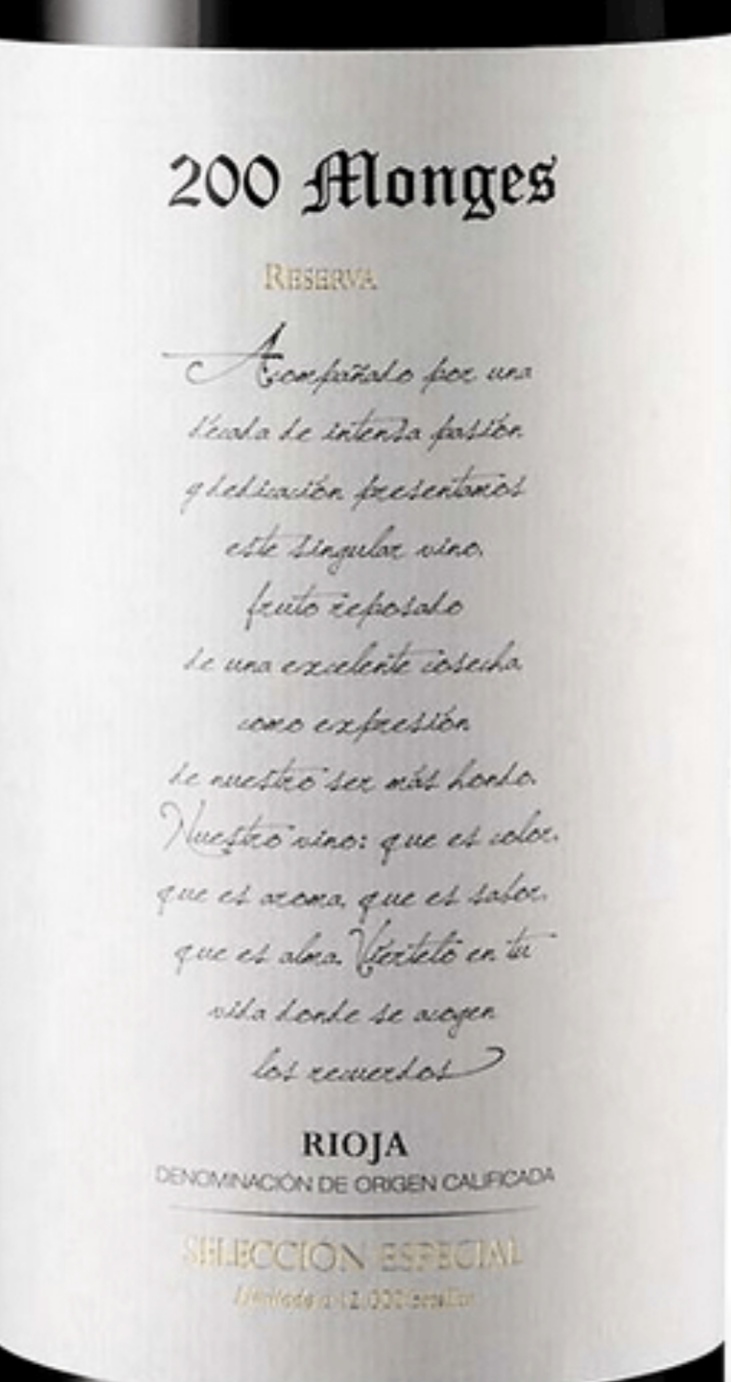 200 Monges
RESERVA
Acompañado por una
década de intensa pasión
y dedicación presentamos
este singular vino,
fruto reposado
de una excelente cosecha,
como expresión
de nuestro ser más hondo.
Nuestro vino: que es color,
que es aroma, que es sabor,
que es alma. Viértelo en tu
vida donde se acogen
los recuerdos
RIOJA
DENOMINACIÓN DE ORIGEN CALIFICADA
SELECCIÓN ESPECIAL
Limitada a 12.000 botellas